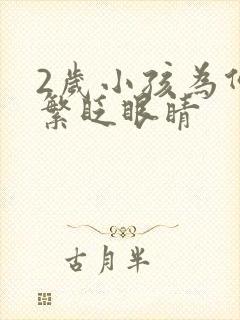 2歲小孩為
繁眨眼睛
古月半